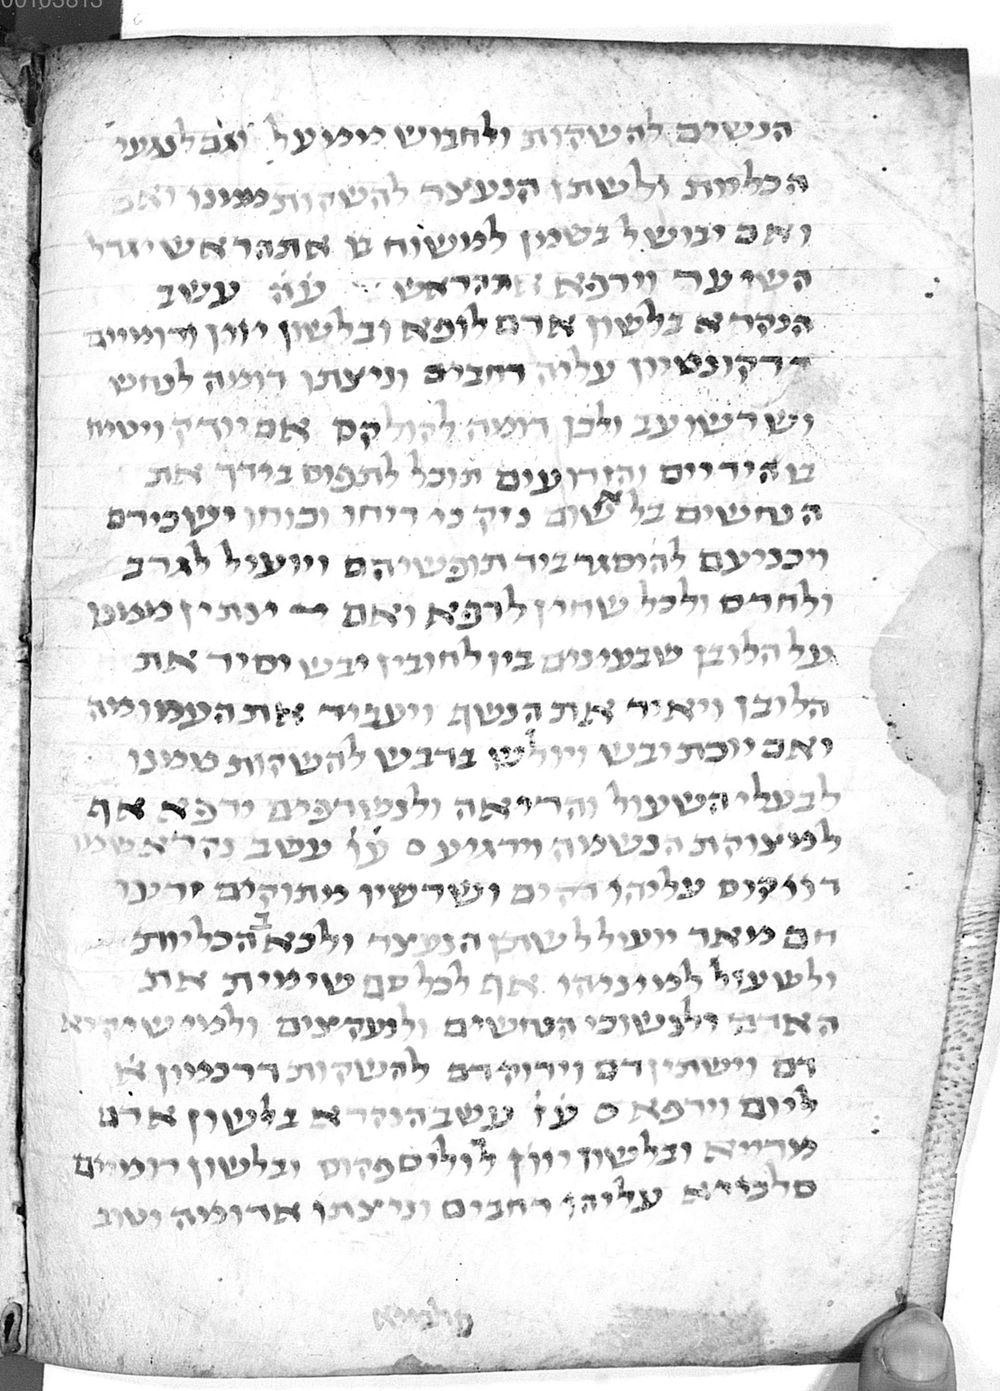 הנשים להשקות ולחבוש ממעל וגם לנגעי
הכליות ולשתן הנעצר להשקות ממינו ואם
ואם יבושל בשמן למשוח בו את הראש יגדל
השיער וירפא את הראש עׄהׄ עשב
הנקרא בלשון ארם לופא ובלשון יוון ורומיים
דרקונטיון עליה רחבים וניצתו דומה לנחש
ושרשו עב ולבן דומה לקולקס אם יודק ויטוח
בו הידיים והזרועים תוכל לתפוס בידך את
הנחשים בלא שום ניזק כי ריחו וכוחו ישכירם
ויכניעם להיסגר ביד תופשיהם ויועיל לגרב
ולחרס ולכל שחין לרפא ואם יינתין ממנו
על הלובן שבעינים בין לח ובין יבש יסיר את
הלובן ויאיר את הנשף ויעביר את העמומה
ואם יוכת יבש ויולש בדבש להשקות ממנו
לבעלי השעול והריאה ולנטורפים ירפא אף
למצוקת הנשמה וירגיע ס עׄוׄ עשב נקרא שמו
דווקוס עליהו דקים ושרשיו מתוקים זרעו
חם מאד יועיל לשתן הנעצר ולכאב הכליות
ולשעול למיניהו אף לכל סם שימית את
האדם ולנשוכי הנחשים ולנעקצים ולמי שיקיא
דם וישתין דם וירוק דם להשקות דרכמון אׄ
ליום וירפא ס עׄזׄ עשב הנקרא בלשון ארם
מרוא ובלשון יוון לוליספקוס ובלשון רומיים
סלביא עליהו רחבים וניצתו אדומה וטוב
סלביא